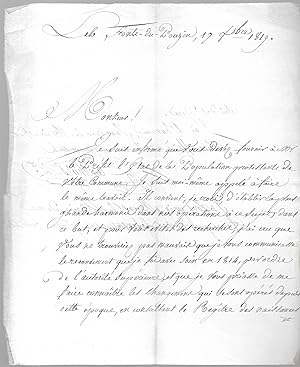 Monsieur !
Je suis informé que vous devez fournir à Mr
le Préfet l'Etat de la Population protestante de
votre Commune. Je suis moi-même appelé à faire
le même travail. Il convient, je crois, d'établir la plus
grande harmonie dans nos opérations à ce sujet; Dans
ce but, et pour vous éviter des recherches, j'ai cru que
vous ne trouveriez pas mauvais que je vous communiquasse
le recensement que je fis en 1814, par ordre
de l'autorité Supérieure, et que je vous priasse de me
faire connaître les changemens qui se sont opérés depuis
cette époque, en consultant le Régître des naissances